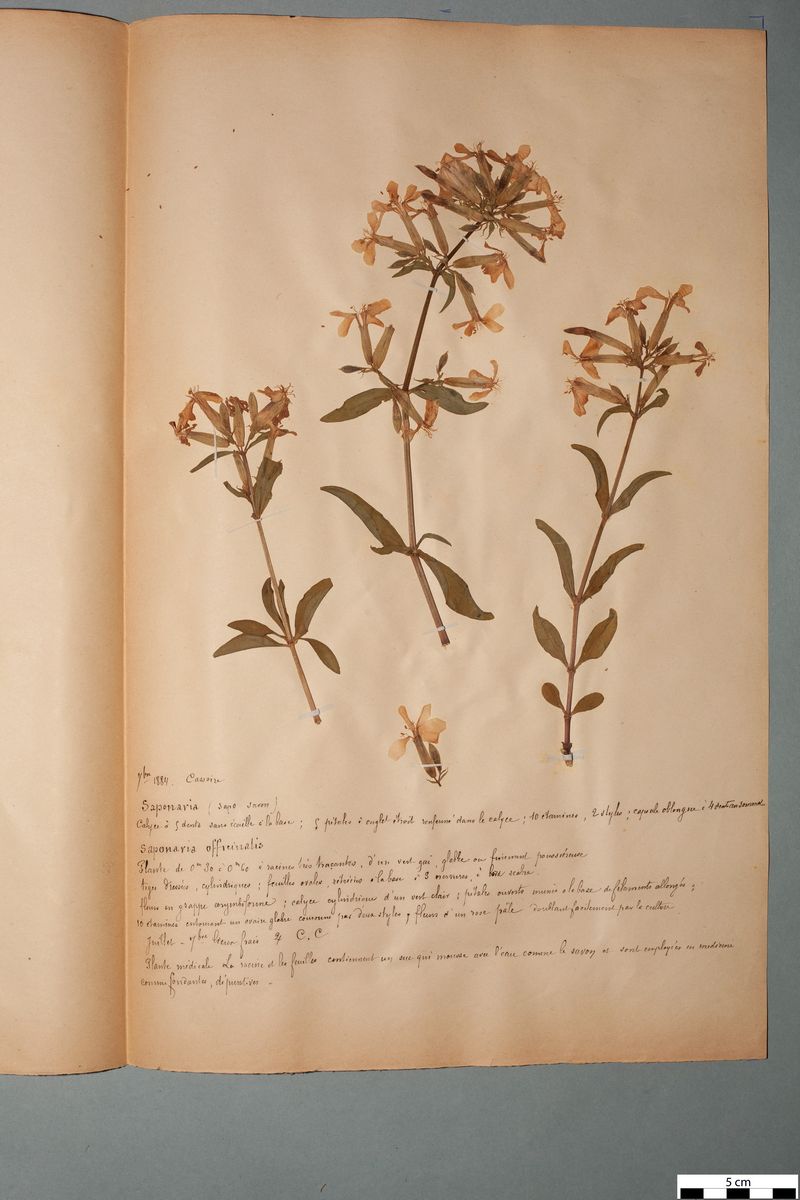 7bre 1884. Cassine
Saponaria (sapo savon)
Calyce à 5 dents sans écaille à la base ; 5 pétales à onglet étroit renfermé dans le calyce ; 10 étamines, 2 styles ; capsule oblongue à 4 dents au sommet
Saponaria officinalis
Plante de 0m30 à 0m60 à racines très traçantes, d'un vert gai, glabre ou finement poussiéreuse
tiges dressées, cylindriques ; feuilles ovales, rétrécies à la base à 3 nervures, à bord scabre.
fleurs en grappe corymbiforme ; calyce cylindrique d'un vert clair ; pétales ouverts munis à la base de filaments allongés ;
10 étamines entourant un ovaire glabre couronné par deux styles ; fleurs d'un rose pâle doublant facilement par la culture
Juillet - 7bre lieux frais ♃ C. C
Plante médicale La racine et les feuilles contiennent un suc qui mousse avec l'eau comme le savon et sont employées en médecine
comme fondantes, dépuratives -
5 cm